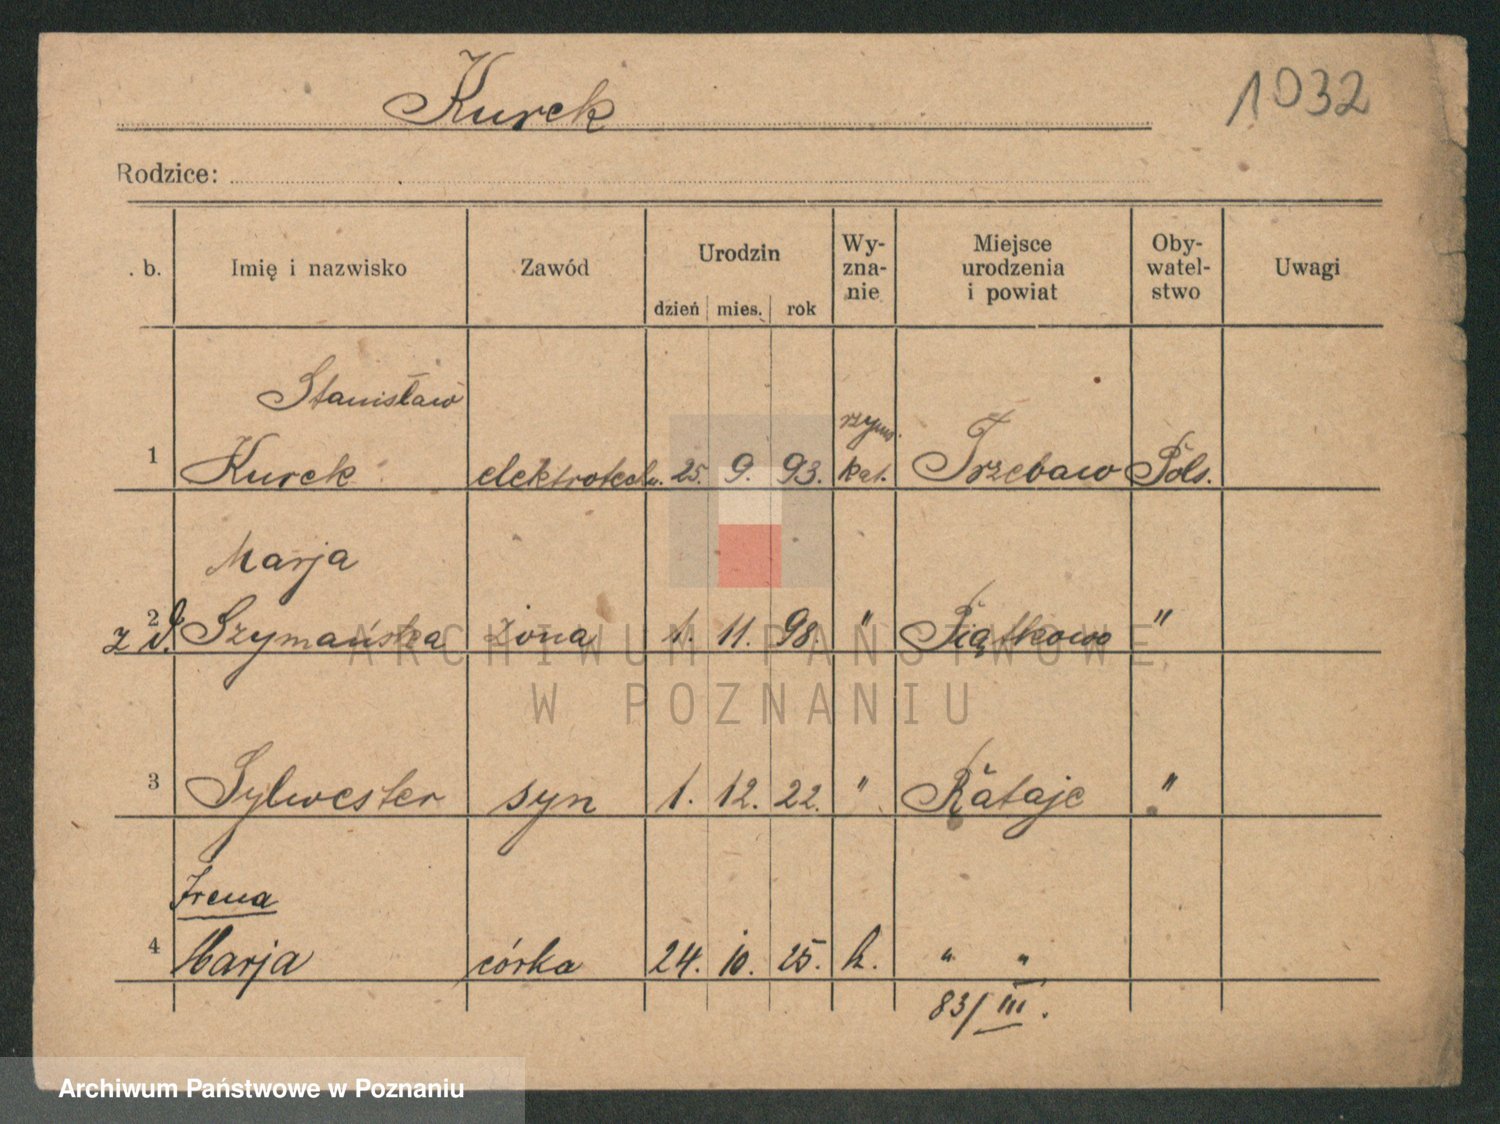 Kurek
1032
Rodzice:
. b. Imię i nazwisko Zawód Urodzin dzień mies. rok Wy-zna-nie Miejsce urodzenia i powiat Oby-watel-stwo Uwagi
Stanisław rzyms.
1 Kurek elektrotechn. 25. 9. 93. kat. Trzebaw Pols.
Marja
2 z d. Szymańska żona 1. 11. 98. " Piątkowo "
3 Sylwester syn 1. 12. 22. " Rataje "
Irena
4 Marja córka 24. 10. 25. k. " "
83/III.
ARCHIWUM PAŃSTWOWE
W POZNANIU
Archiwum Państwowe w Poznaniu